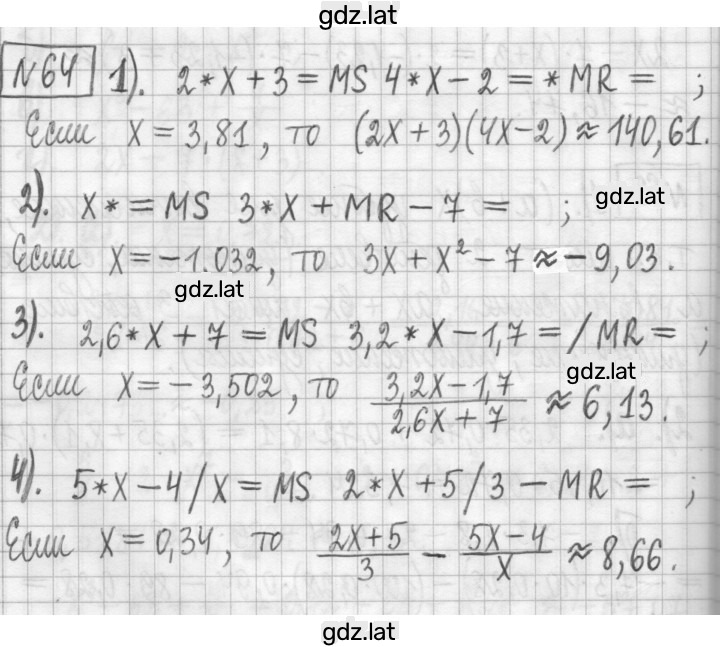 gdz.lat
№64 1). 2*X+3=MS 4*X-2=*MR= ;
Если X=3,81, то (2X+3)(4X-2)≈140,61.
2). X*=MS 3*X+MR-7= ;
gdz.lat
Если X=-1.032, то 3X+X²-7≈-9,03.
gdz.lat
3). 2,6*X+7=MS 3,2*X-1,7=/MR= ;
gdz.lat
Если X=-3,502, то (3,2X-1,7)/(2,6X+7) ≈ 6,13.
4). 5*X-4/X=MS 2*X+5/3-MR= ;
Если X=0,34, то (2X+5)/3 - (5X-4)/X ≈8,66.
gdz.lat